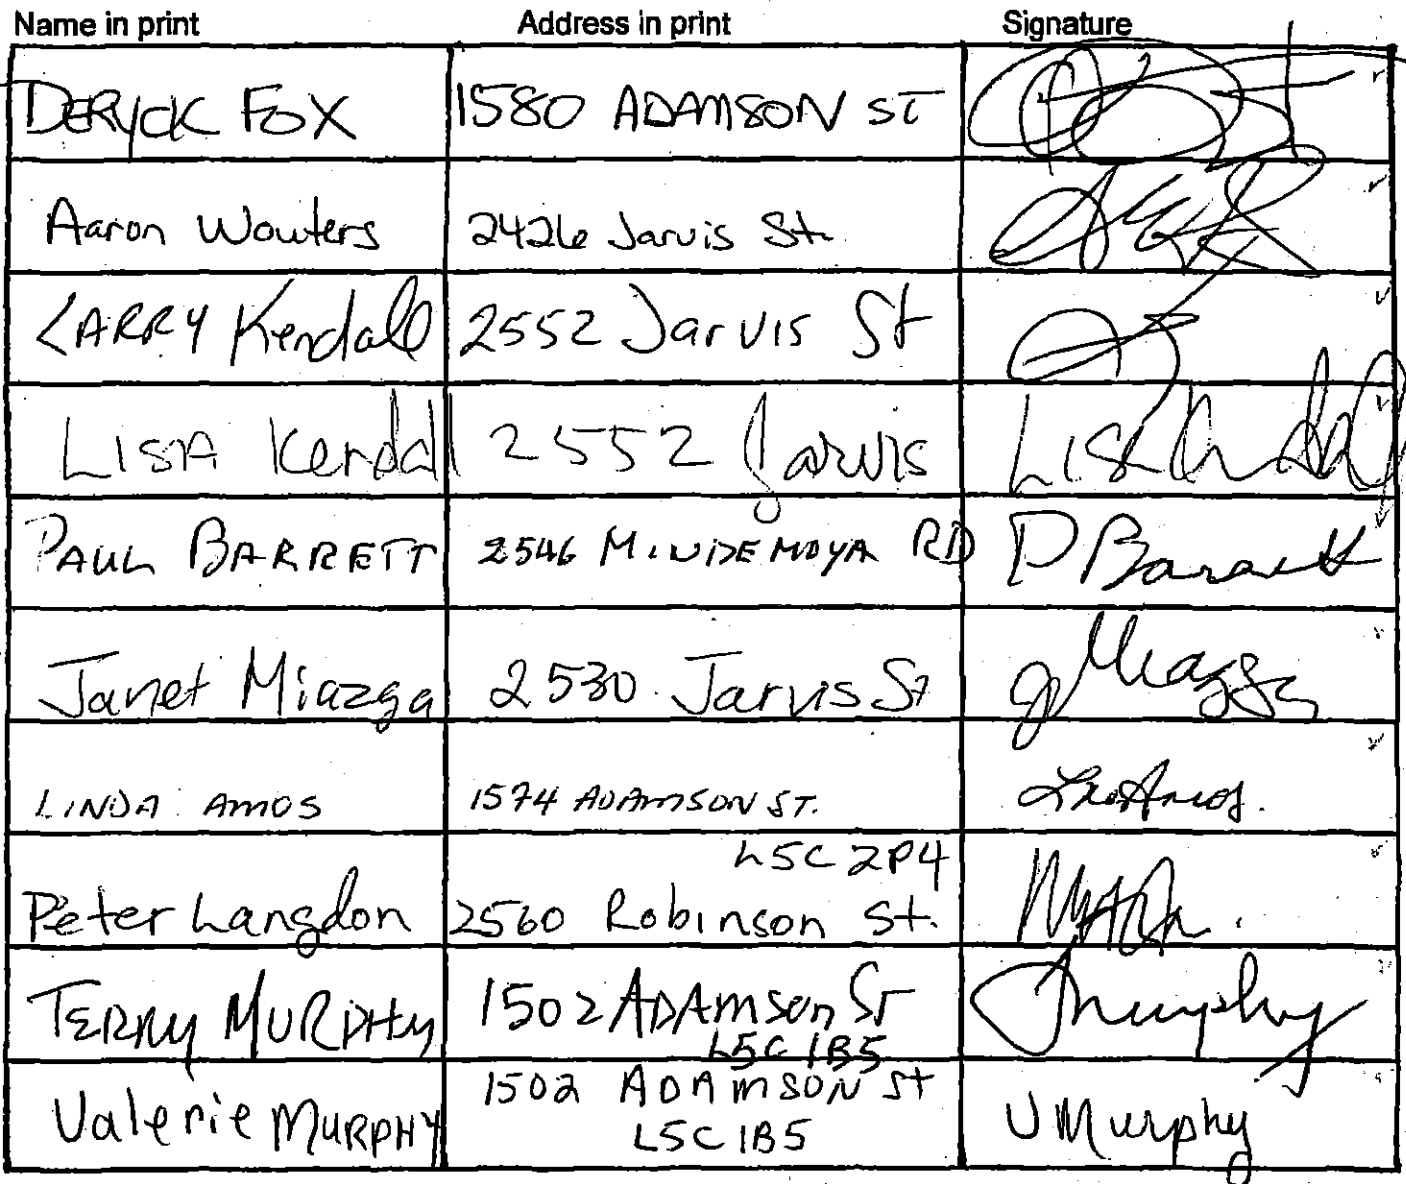 Name in print Address in print Signature
DERYCK FOX 1580 ADAMSON ST
Aaron Wouters 2426 Jarvis St.
LARRY Kendall 2552 Jarvis St
LISA Kendall 2552 Jarvis Lisa Kendall
PAUL BARRETT 2546 MINDEMOYA RD P Barrett
Janet Miazga 2530 Jarvis St J Miazga
LINDA AMOS 1574 ADAMSON ST. L Amos.
L5C 2P4
Peter Langdon 2560 Robinson St.
TERRY MURPHY 1502 ADAMSON ST T Murphy
L5C 1B5
1502 ADAMSON St
Valerie MURPHY L5C 1B5 V Murphy